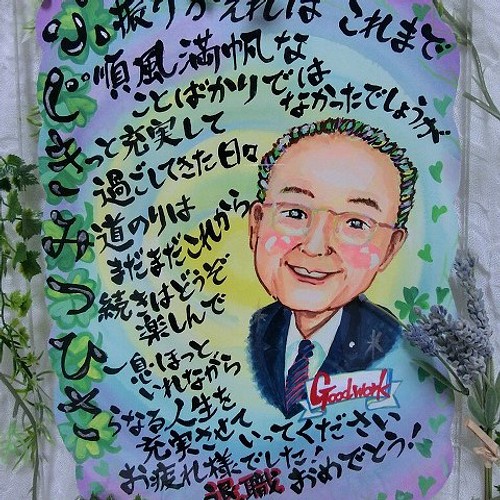 ふじきみつひさ
振りかえれば これまで
順風満帆な
ことばかりでは
なかったでしょうが
っと充実して
過ごしてきた日々
道のりは
まだまだこれから
続きはどうぞ
楽しんで
一息・ほっと
いれながら
らなる人生を
充実させていってください
お疲れ様でした!
退職おめでとう!
Good work!